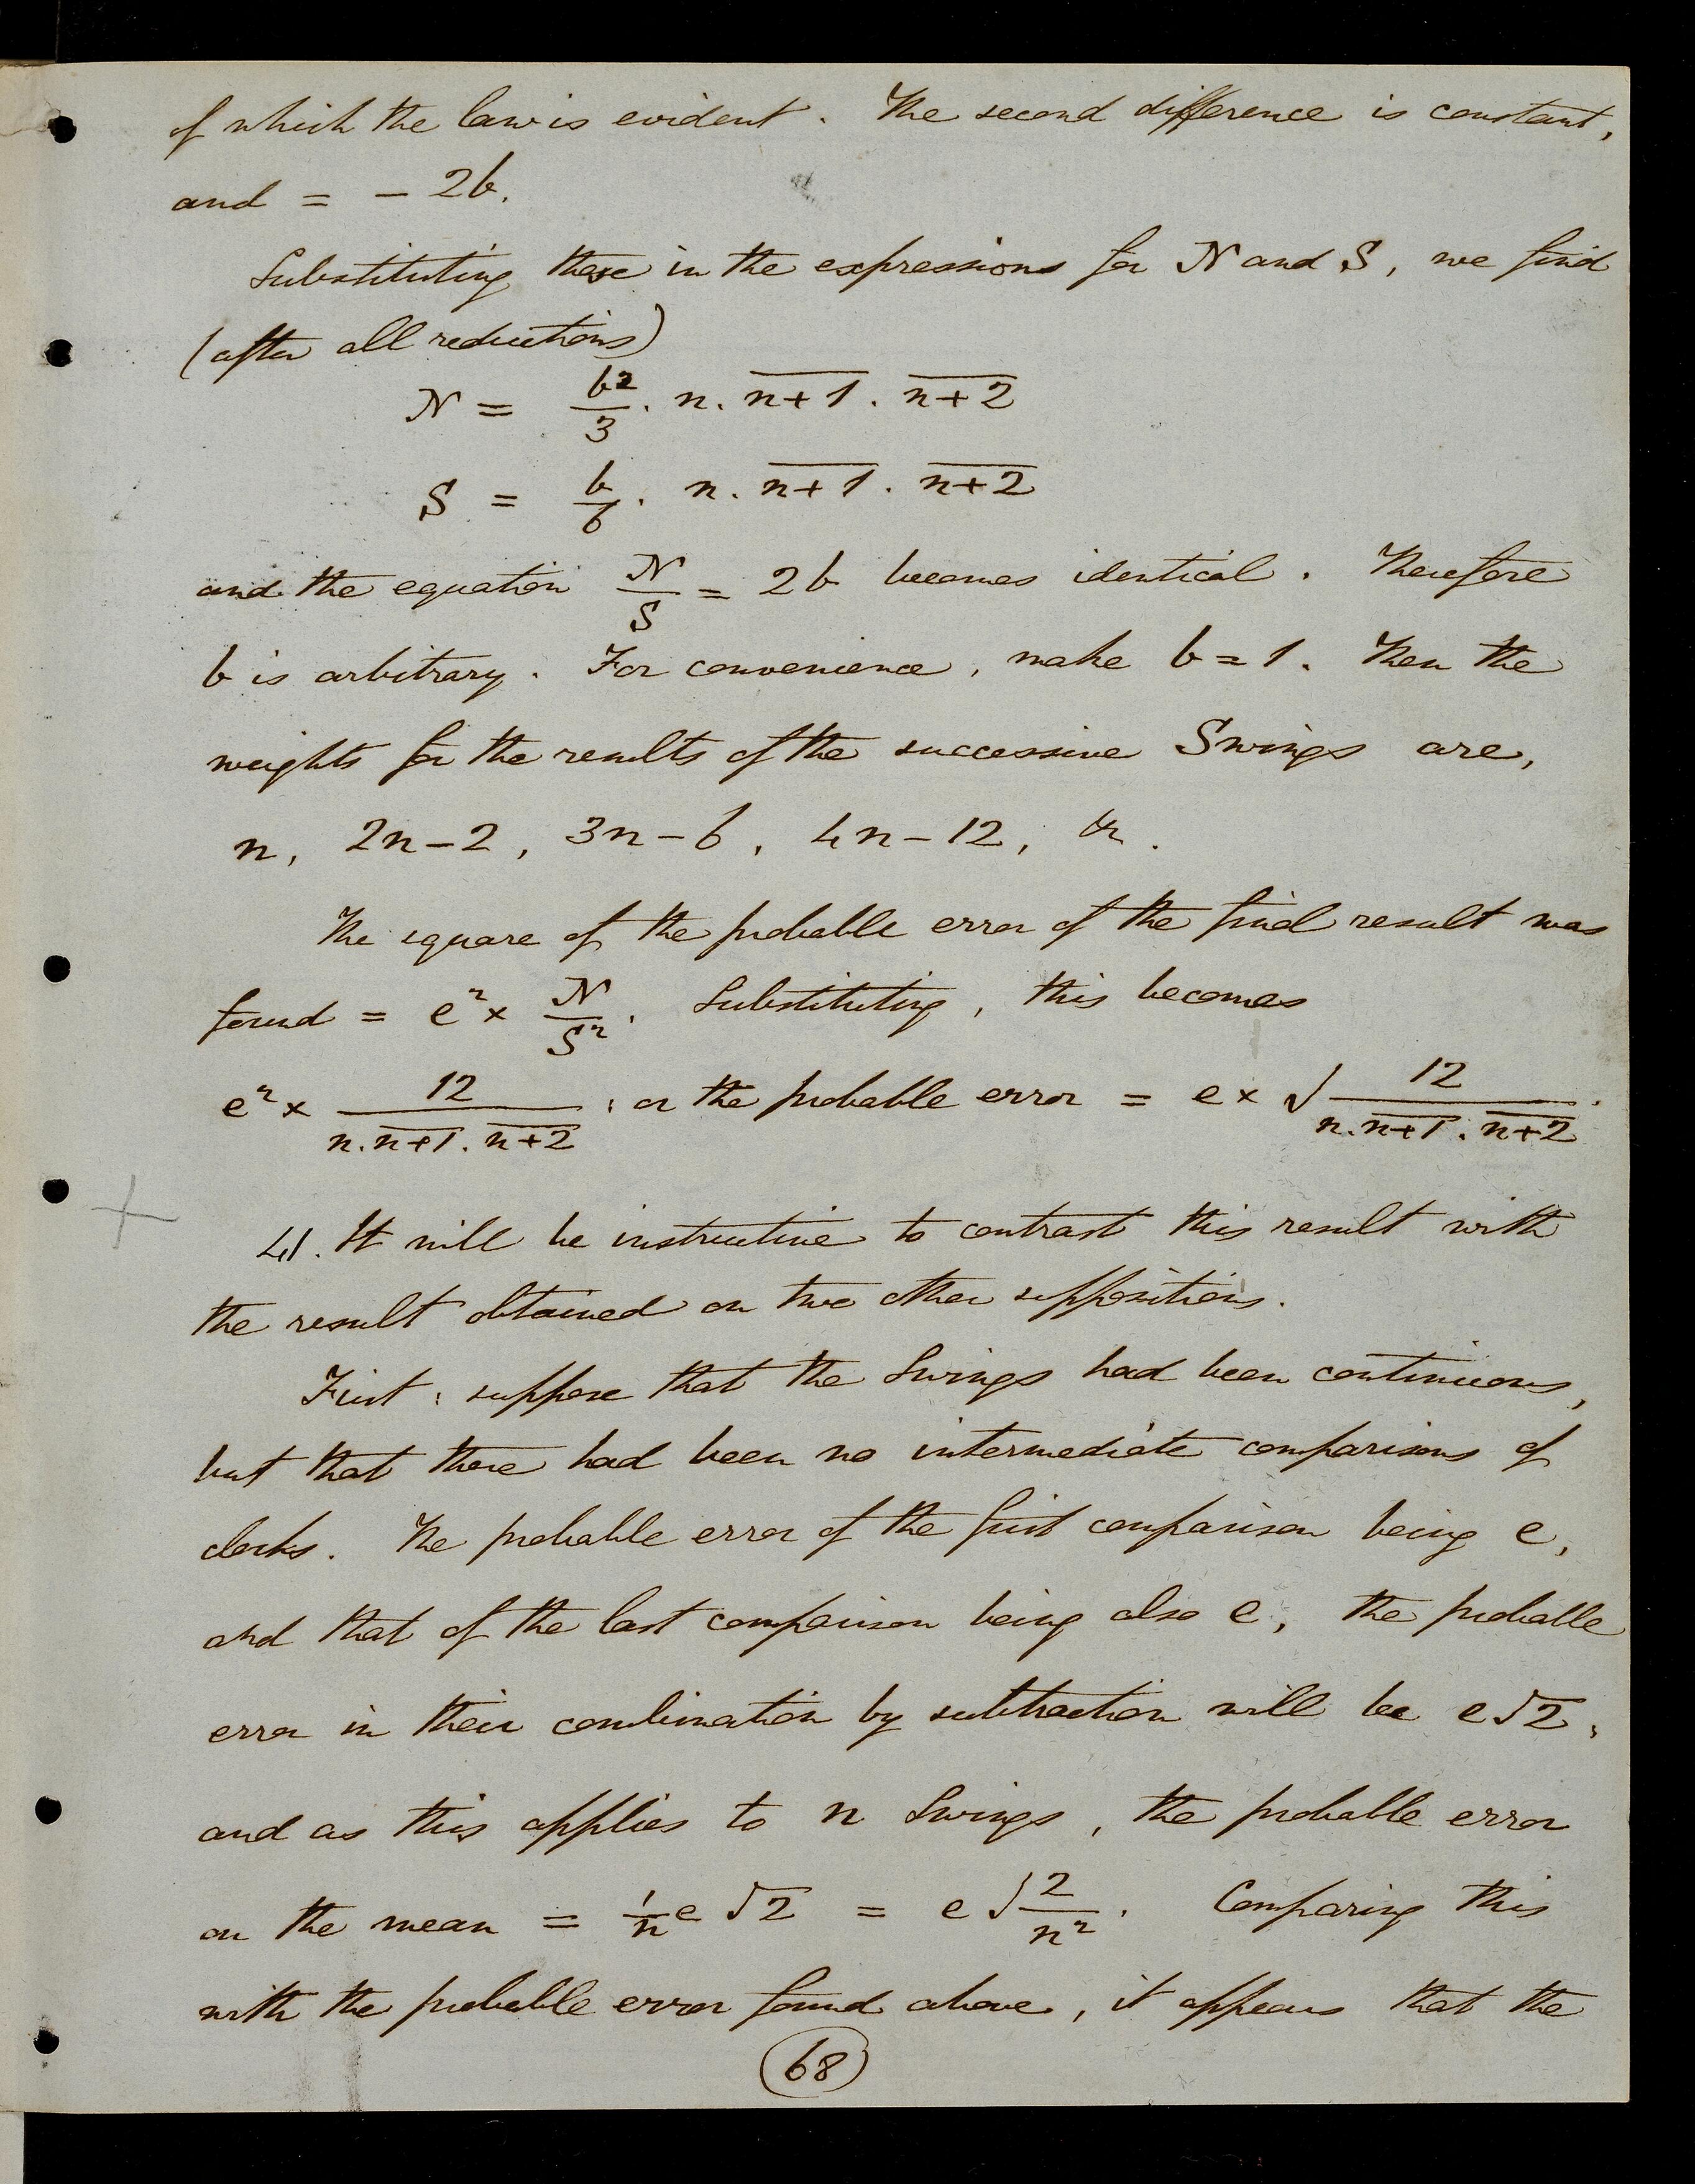 of which the law is evident. The second difference is constant,
and = - 2b.
Substituting these in the expressions for N and S, we find
(after all reductions)
N = b²/3 . n. n+1 . n+2
S = b/6 . n. n+1 . n+2
and the equation N/S = 2b becomes identical. Therefore
b is arbitrary. For convenience, make b = 1. Then the
weights for the results of the successive Swings are,
n, 2n-2, 3n-6, 4n-12, &c.
The square of the probable error of the final result was
found = e² × N/S². Substituting, this becomes
e² × 12/(n. n+1. n+2) : or the probable error = e × √12/(n. n+1. n+2).
41. It will be instructive to contrast this result with
the result obtained on two other suppositions.
First: suppose that the Swings had been continuous,
but that there had been no intermediate comparisons of
clocks. The probable error of the first comparison being e,
and that of the last comparison being also e, the probable
error in their combination by subtraction will be e√2,
and as this applies to n Swings, the probable error
on the mean = 1/n e √2 = e √2/n². Comparing this
with the probable error found above, it appears that the
68